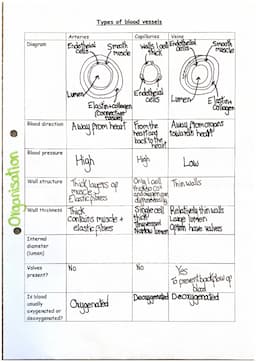 Types of blood vessels
Organisation
Arteries
Capillaries
Veins
Diagram
Endothelial cells
Smooth muscle
Lumen
Elastin + collagen
(connective tissue)
Walls 1 cell thick
Endothelial cells
Endothelial cells
Smooth muscle
Lumen
Elastin + collagen
Blood direction
Away from heart
From the heart and back to the heart
Away from organs towards heart
Blood pressure
High
High
Low
Wall structure
Thick layers of muscle
Elastic fibres
Only 1 cell thick
Thin walls
Wall thickness
Thick
contains muscle + elastic fibres
Single cell thick
Narrow lumen
Relatively thin walls
Large lumen
Often have valves
Internal diameter (lumen)
Valves present?
No
No
Yes
To prevent backflow of blood
Is blood usually oxygenated or deoxygenated?
Oxygenated
Deoxygenated
Deoxygenated